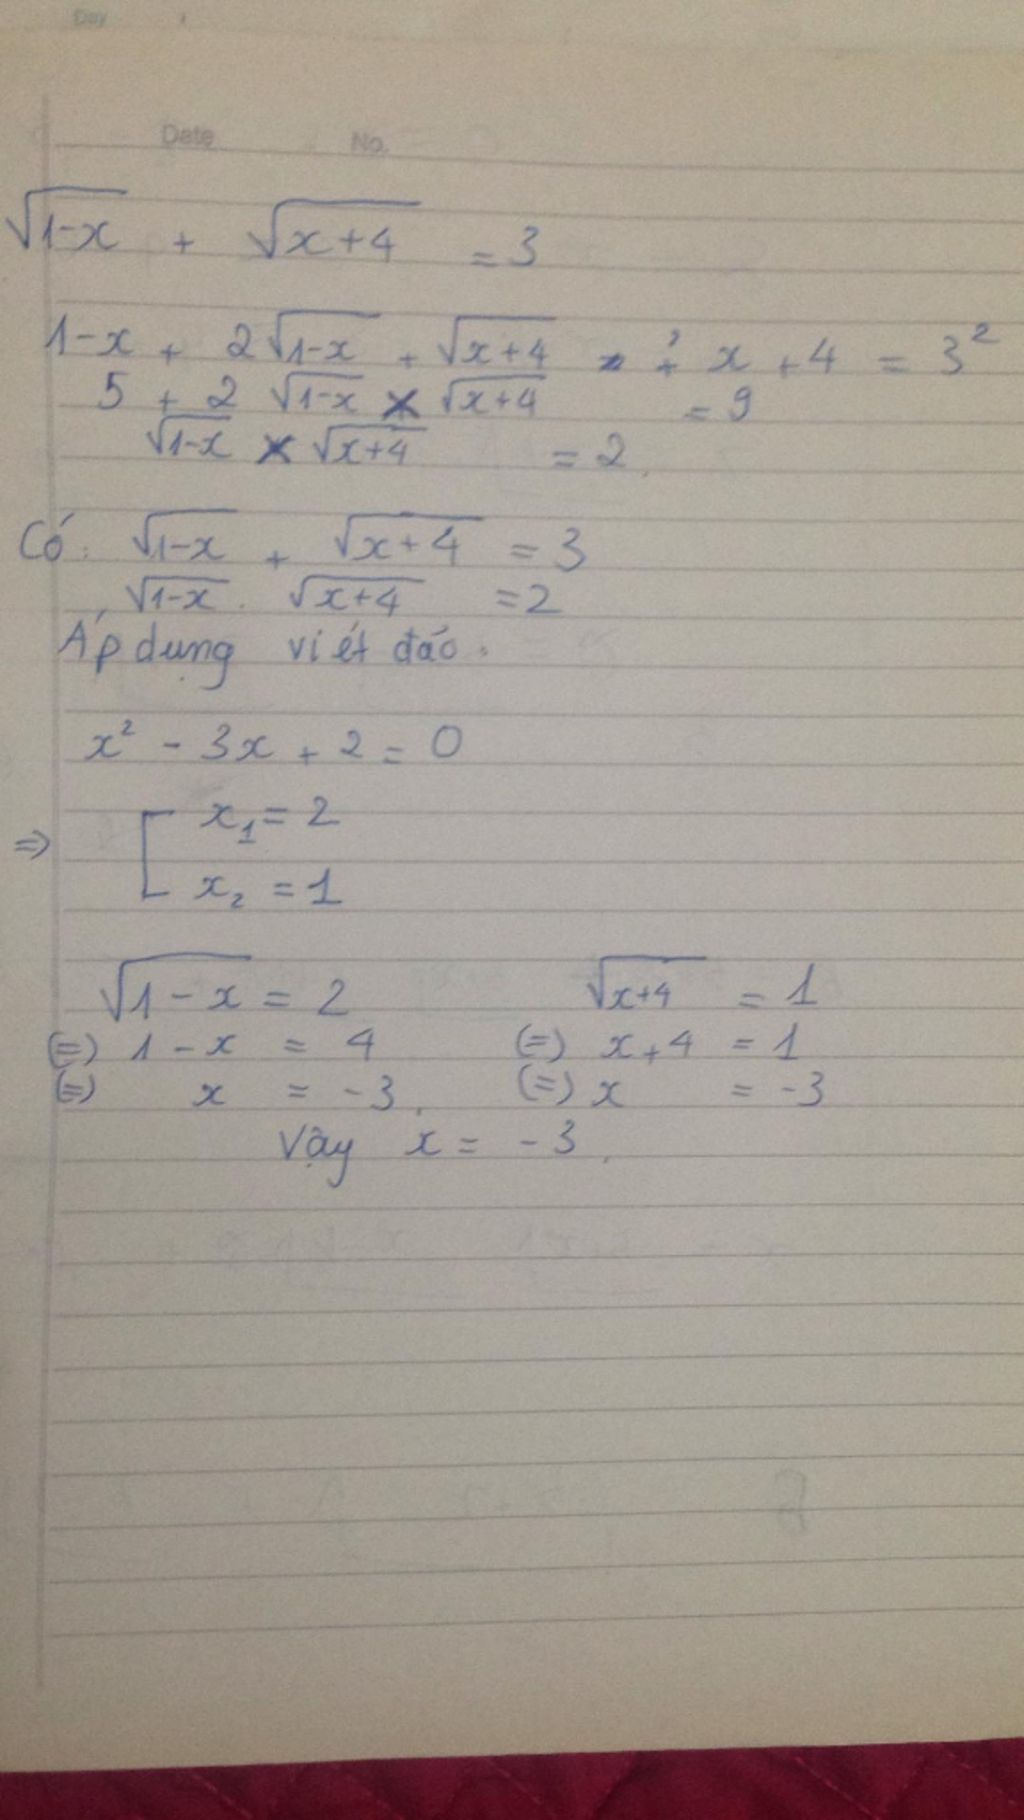 Day
Date No.
√1-x + √x+4 = 3
1-x + 2√1-x + √x+4 + x + 4 = 3²
5 + 2 √1-x × √x+4 = 9
√1-x × √x+4 = 2
Có: √1-x + √x+4 = 3
√1-x . √x+4 = 2
Áp dụng viét đảo.
x² - 3x + 2 = 0
⇒ [ x₁ = 2
x₂ = 1
√1-x = 2 √x+4 = 1
(=) 1-x = 4 (=) x+4 = 1
(=) x = -3. (=) x = -3
Vậy x = -3.